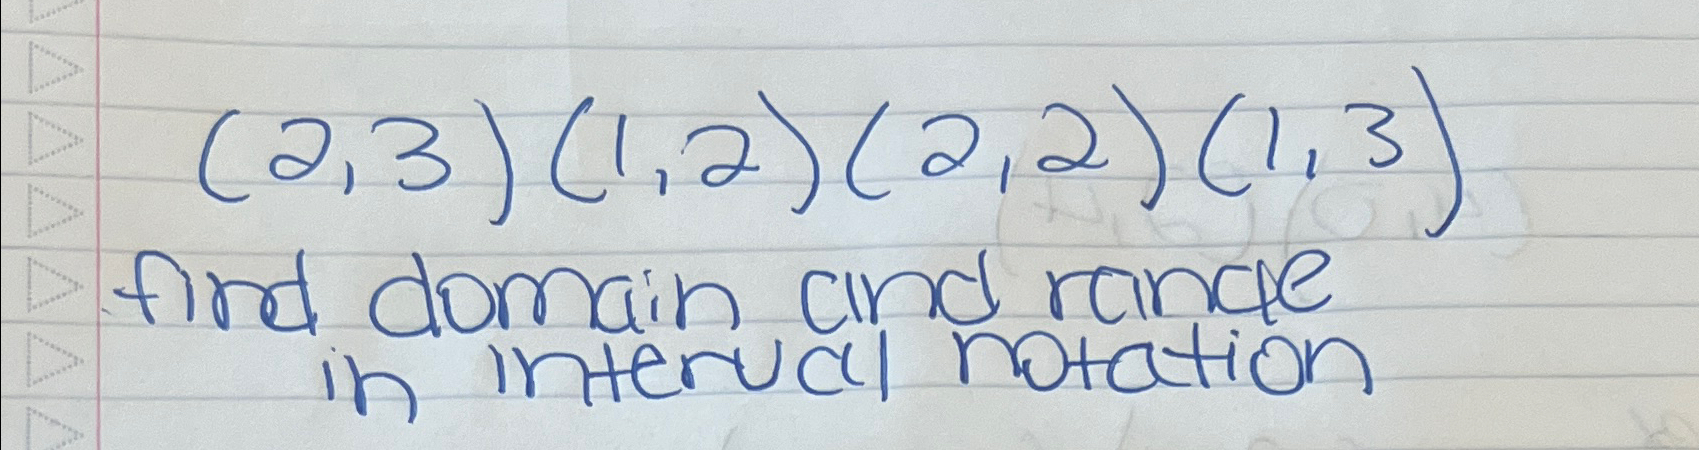 (2,3)(1,2)(2,2)(1,3)
find domain and range
in interval notation